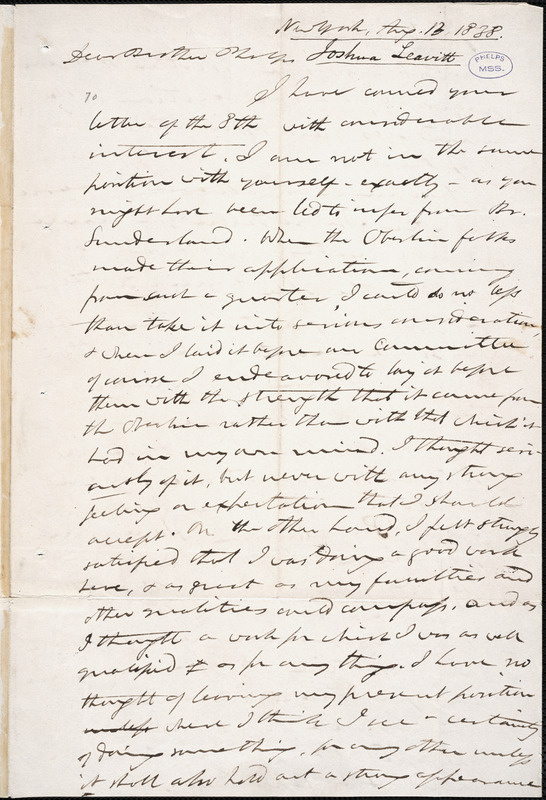 New York, Aug. 13 1838.
Dear Brother Phelps Joshua Leavitt
PHELPS
MSS.
I have conned your
letter of the 8th with considerable
interest. I am not in the same
position with yourself - exactly - as you
might have been led to infer from Br.
Sunderland. When the Oberlin folks
made their application, coming
from such a quarter, I could do no less
than take it into serious consideration,
& when I laid it before our Committee
of course I endeavored to lay it before
them with the strength that it came from
the Oberlin rather than with that which it
had in my own mind. I thought seri-
ously of it, but never with any strong
feeling or expectation that I should
accept. On the other hand, I felt strongly
satisfied that I was doing a good work
here, & as great as my faculties and
other qualities could compass. and as
I thought a work for which I was as well
qualified as for any thing. I have no
thought of leaving my present position
unless where I think I see a certainty
of doing something, for any other unless
it shall also hold out a strong appearance